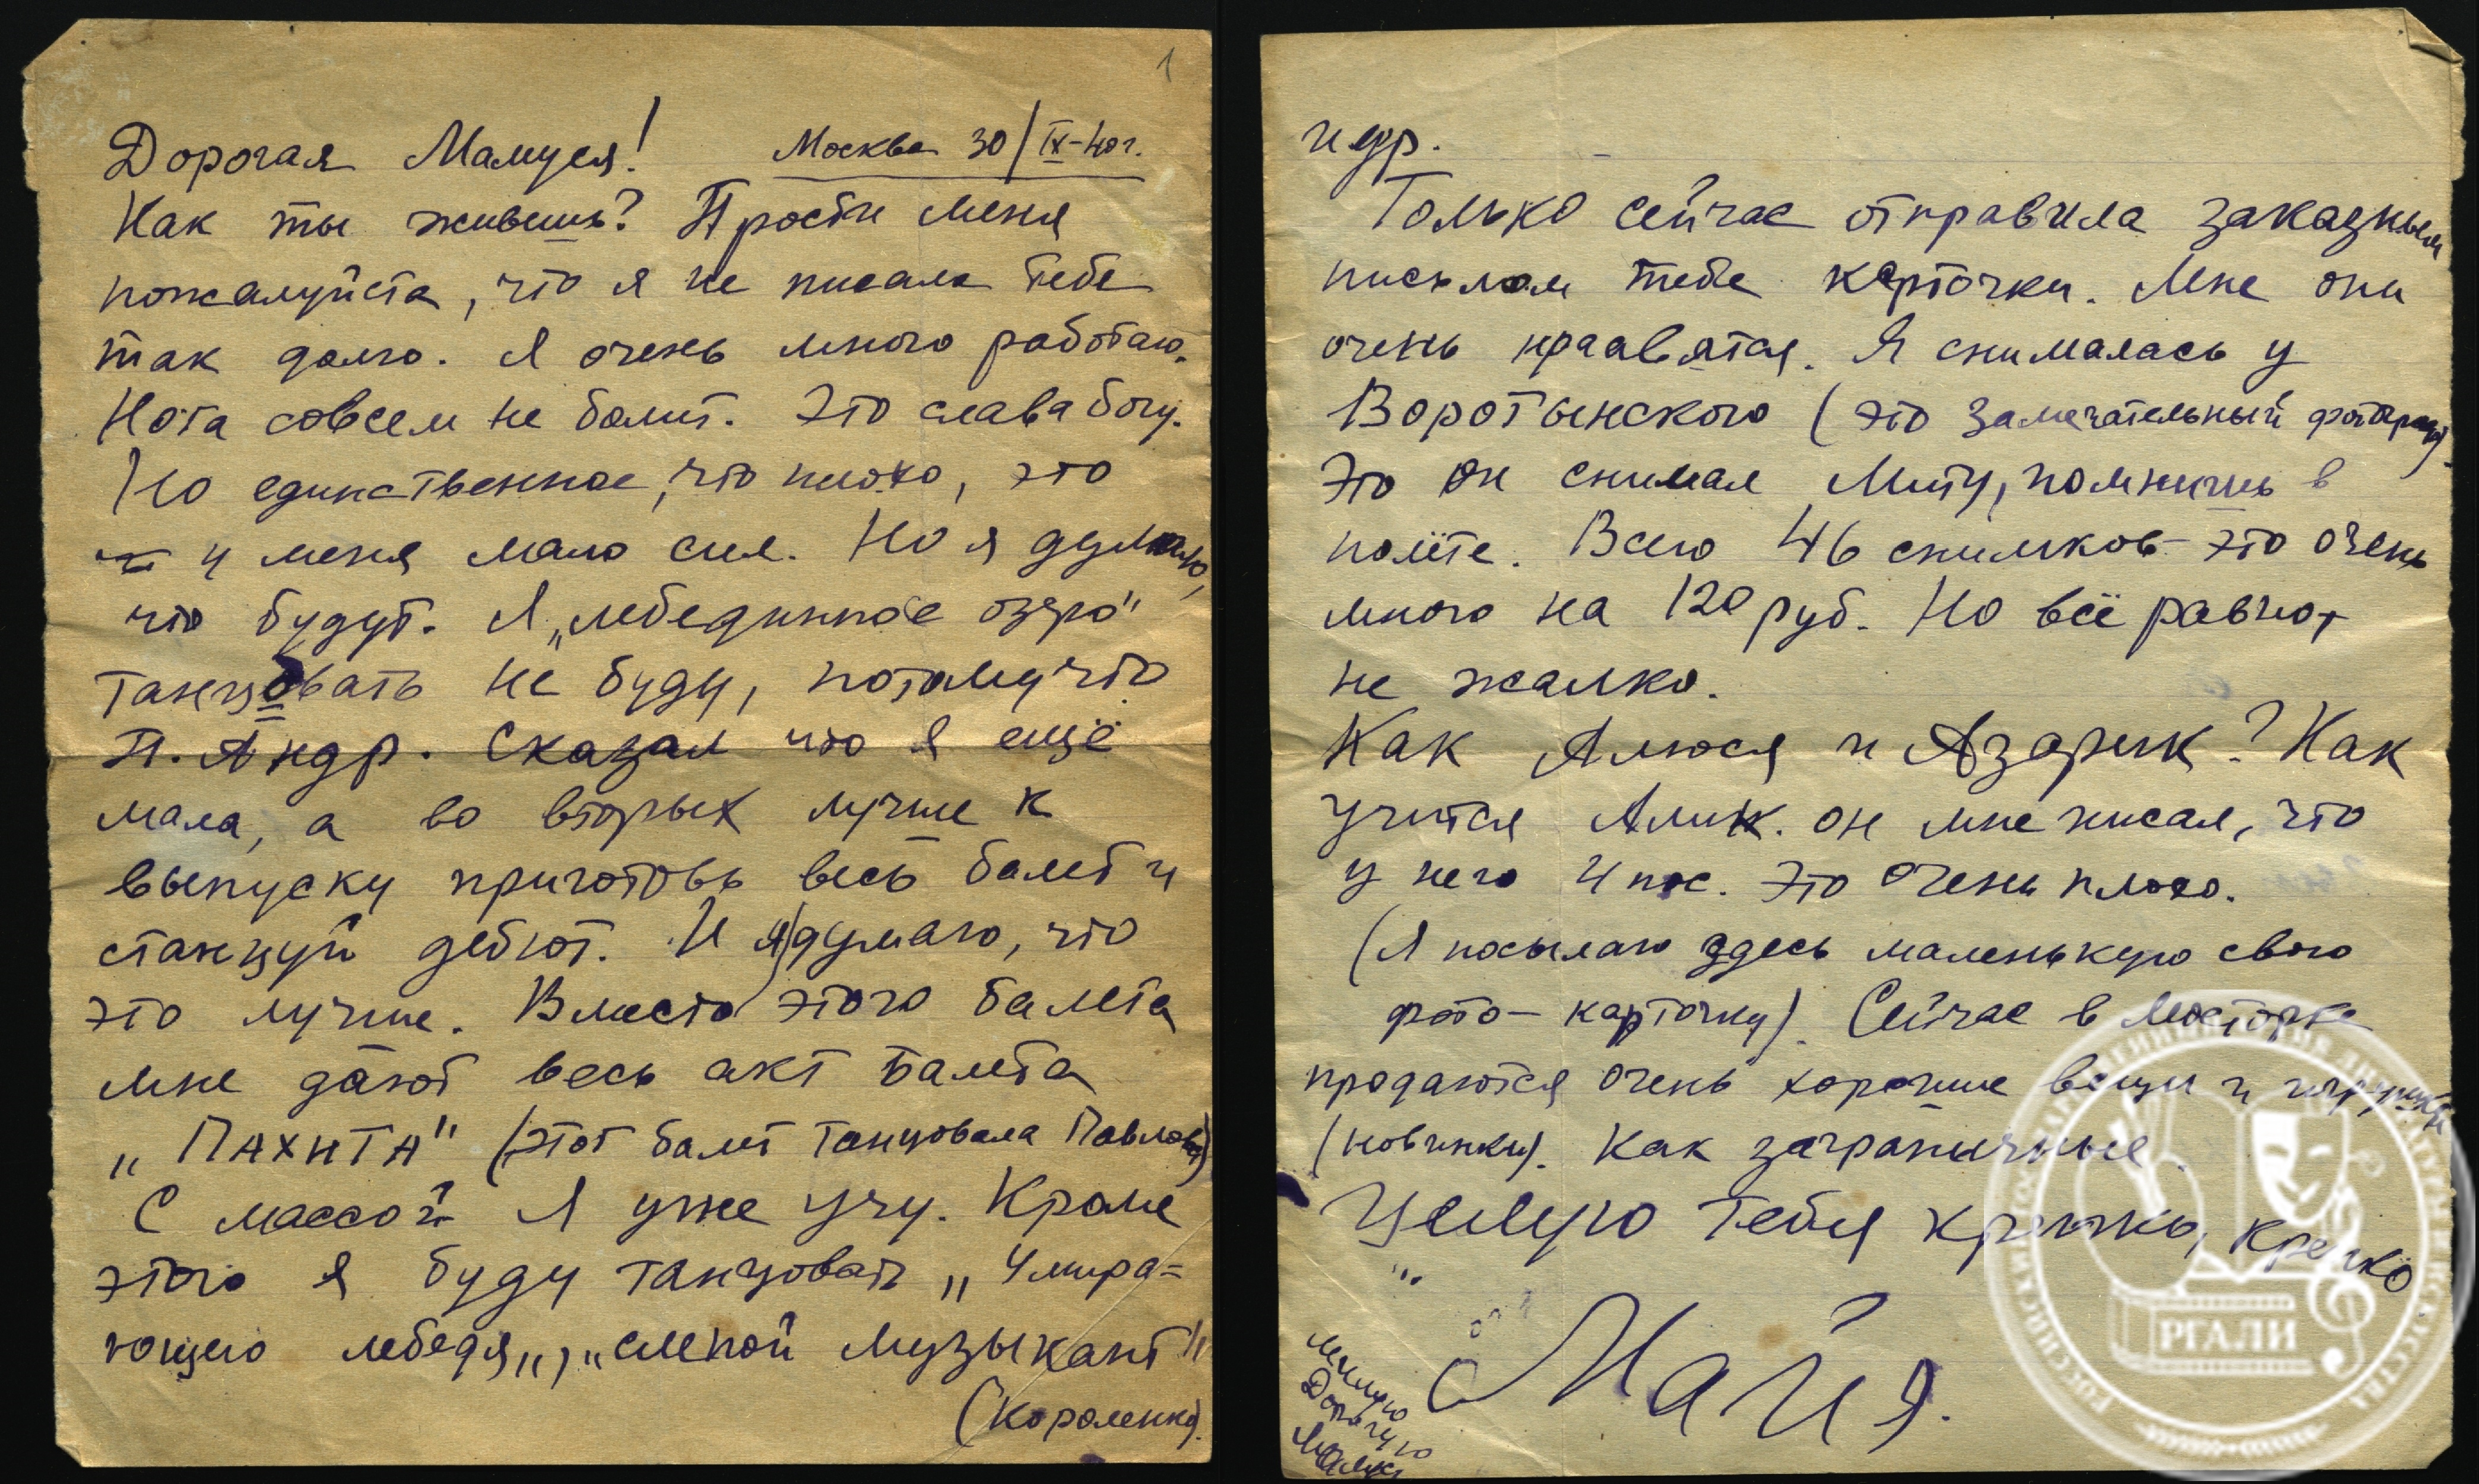 1
Дорогая Мамуся! Москва 30/IX-40г.
Как ты живешь? Прости меня
пожалуйста, что я не писала тебе
так долго. Я очень много работаю.
Нога совсем не болит. Это слава богу.
Но единственное, что плохо, это
у меня мало сил. Но я думаю,
что будут. Я „лебединное озро"
танцовать не буду, потому что
П. Андр. Сказал что я ещё
мала, а во вторых лучше к
выпуску приготовь весь балет и
станцуй дебют. И я думаю, что
это лучше. Вместо этого балета
мне дают весь акт балета
„ПАХИТА" (этот балет танцовала Павлова)
С массой Я уже учу. Кроме
этого я буду танцовать „Умира=
ющего лебедя„, „слепой музыкант"
(Короленко).
и др.
Только сейчас отправила заказным
письмом тебе карточки. Мне они
очень нраавятся. Я снималась у
Воротынского (это замечательный фотограф).
Это он снимал Миту, помнишь в
полёте. Всего 46 снимков - это очень
много на 120 руб. Но всё равно,
не жалко.
Как Алюся и Азарик? Как
учится Алик. он мне писал, что
у него 4 пос. Это очень плохо.
(Я посылаю здесь маленькую свою
фото-карточку). Сейчас в Мосторге
продаются очень хорошие вещи и игрушки
(новинки). Как заграничные.
Целую тебя крепко, крепко
Майя.
милую
Дорогую
РГАЛИ